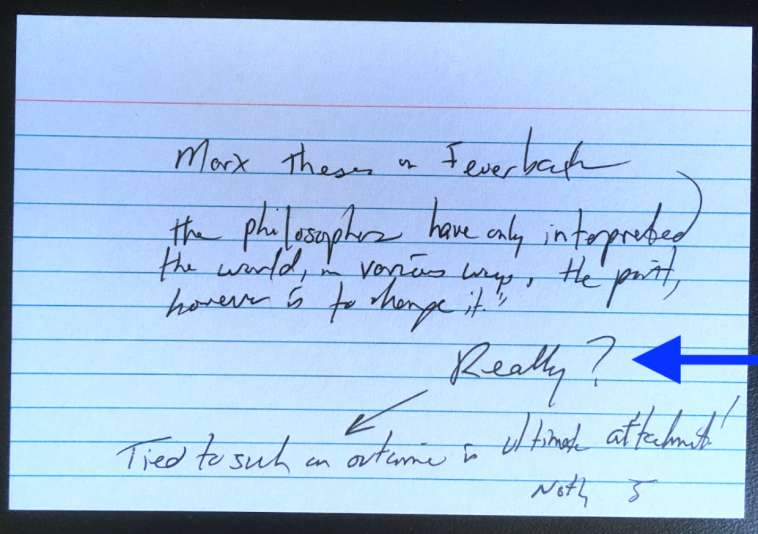 Marx Theses on Feuerbach
the philosophers have only interpreted
the world, in various ways, the point,
however is to change it."
Really?
Tied to such an outcome is ultimate attachment!